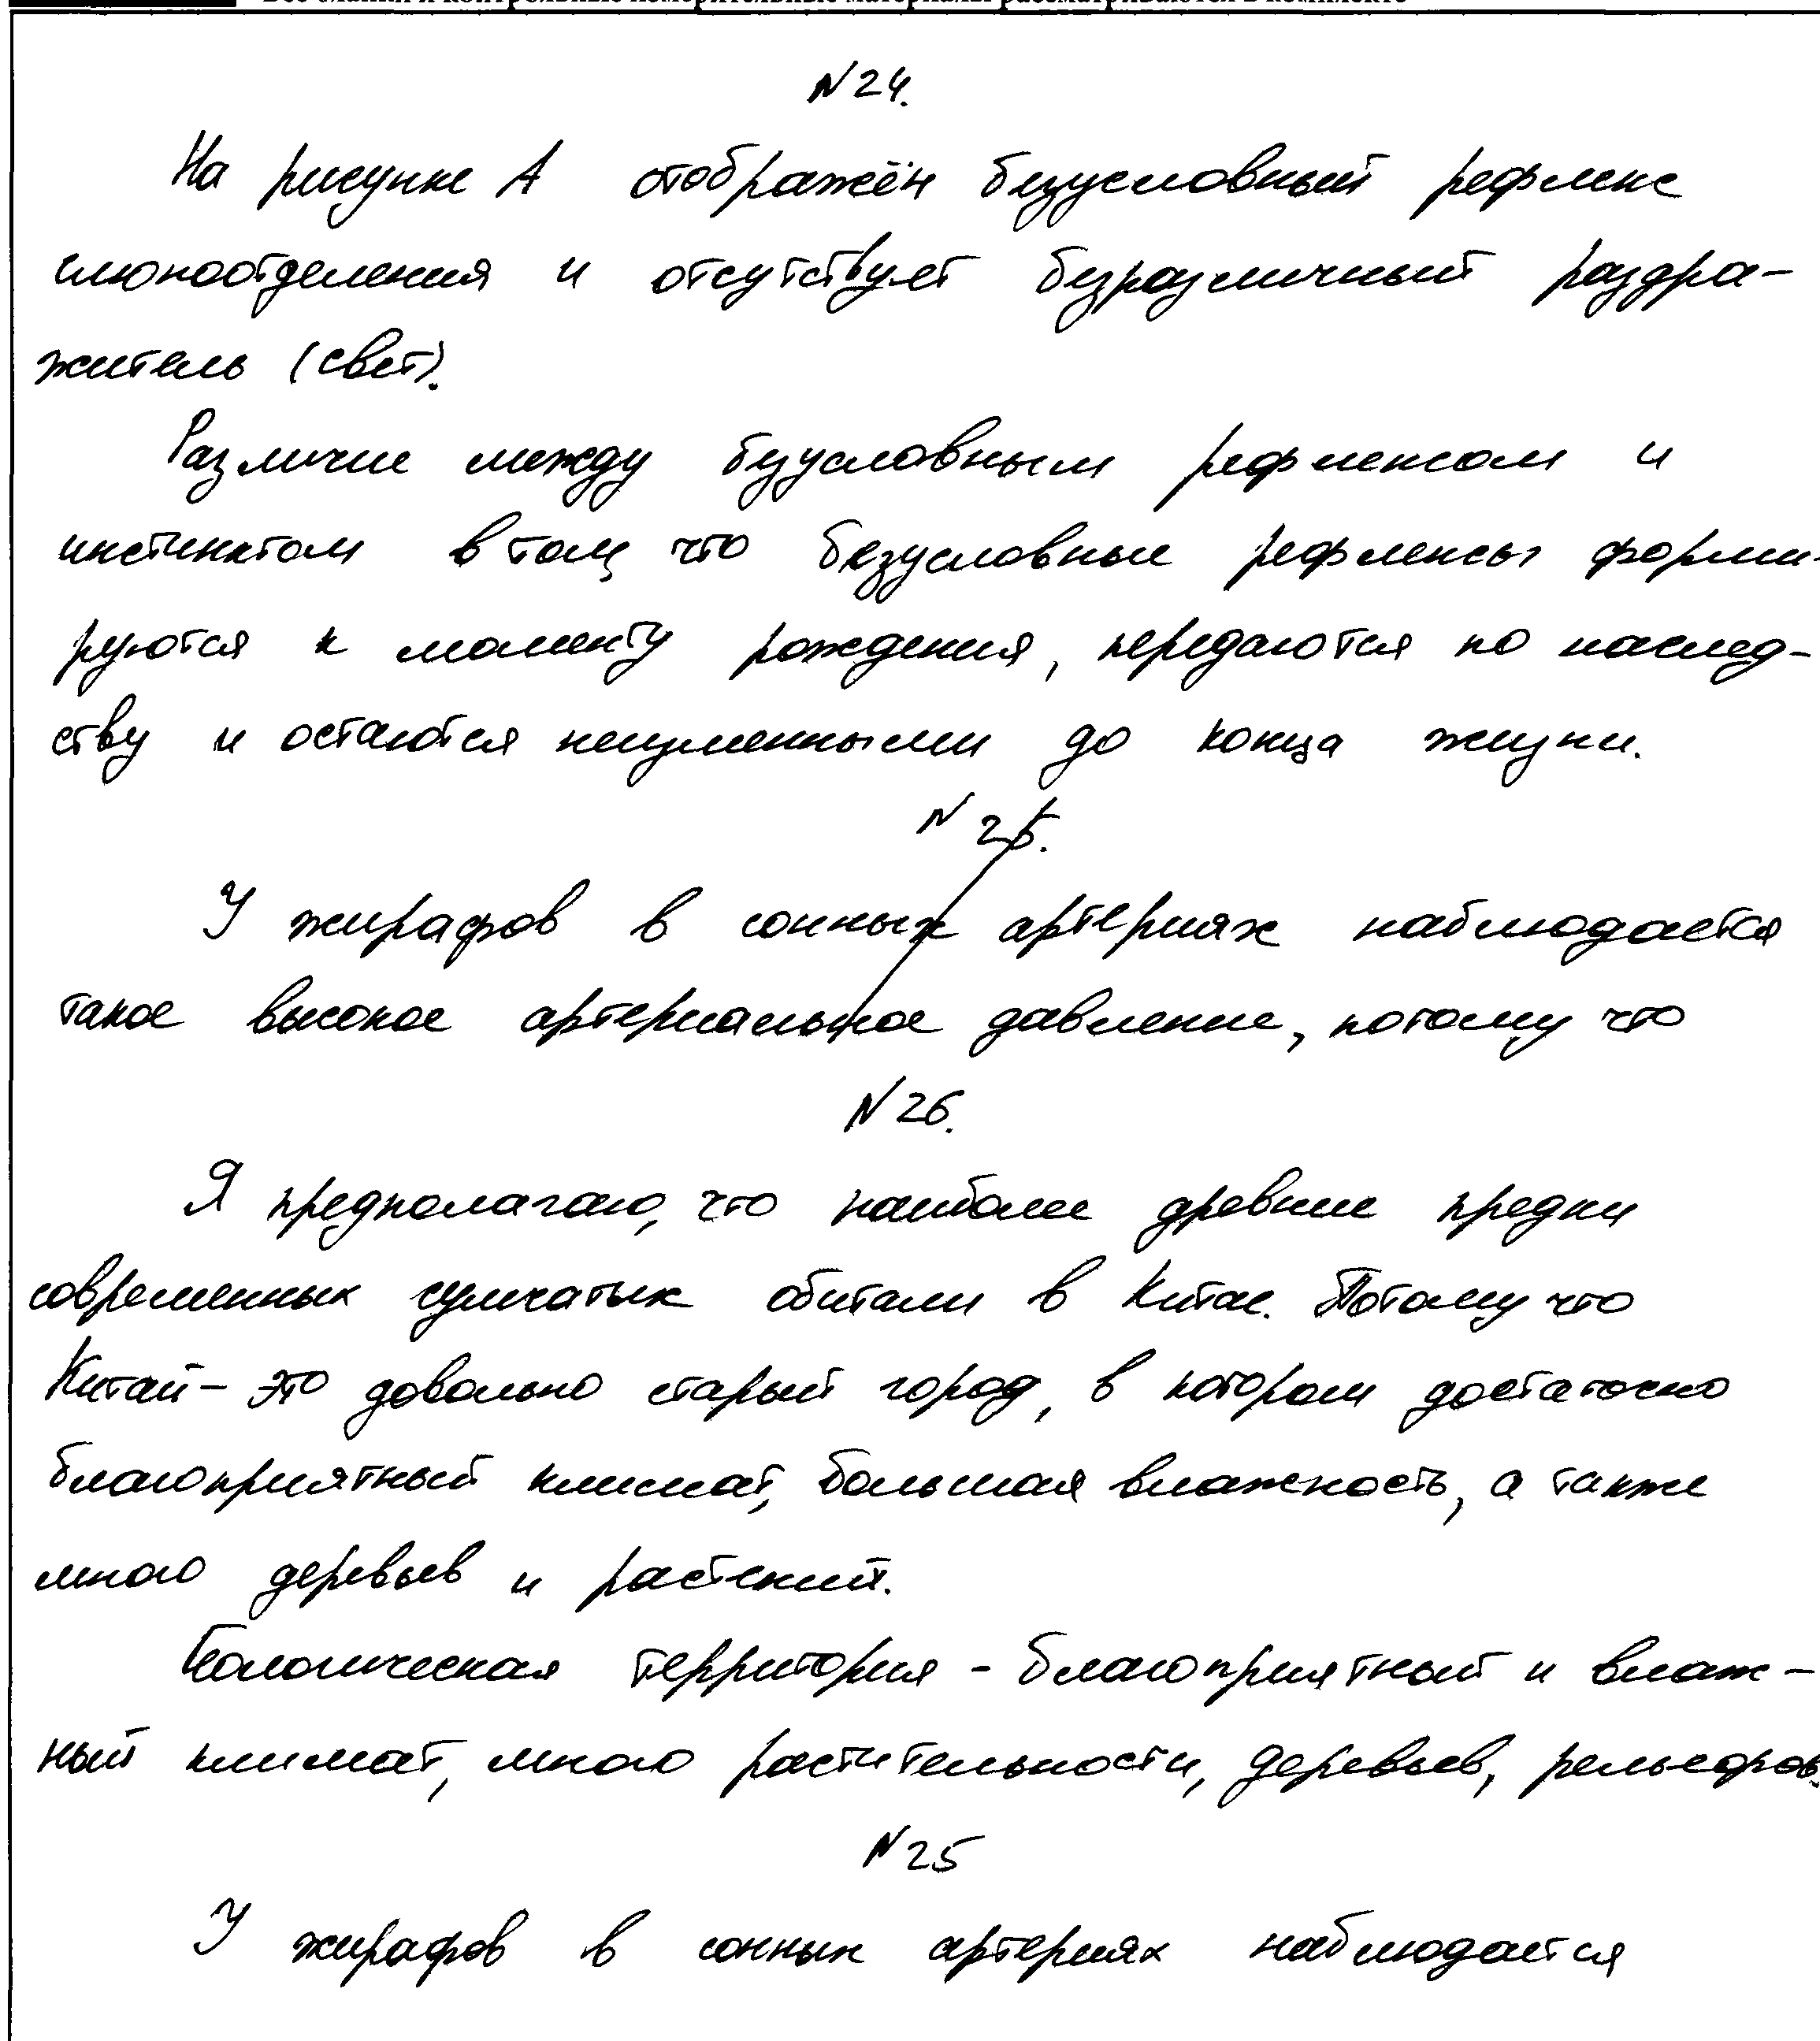 Все бланки и контрольные измерительные материалы рассматриваются в комплекте
N 24.
На рисунке А отображён безусловный рефлекс
слюноотделения и отсутствует безразличный раздра-
житель (свет).
Различие между безусловным рефлексом и
инстинктом в том, что безусловные рефлексы форми-
руются к моменту рождения, передаются по наслед-
ству и остаются неизменными до конца жизни.
N 25.
У жирафов в сонных артериях наблюдается
такое высокое артериальное давление, потому что
N 26.
Я предполагаю, что наиболее древние предки
современных сумчатых обитали в Китае. Потому что
Китай - это довольно старый город, в котором достаточно
благоприятный климат, большая влажность, а также
много деревьев и растений.
Геологическая территория - благоприятный и влаж-
ный климат, много растительности, деревьев, рельефов.
N 25
У жирафов в сонных артериях наблюдается